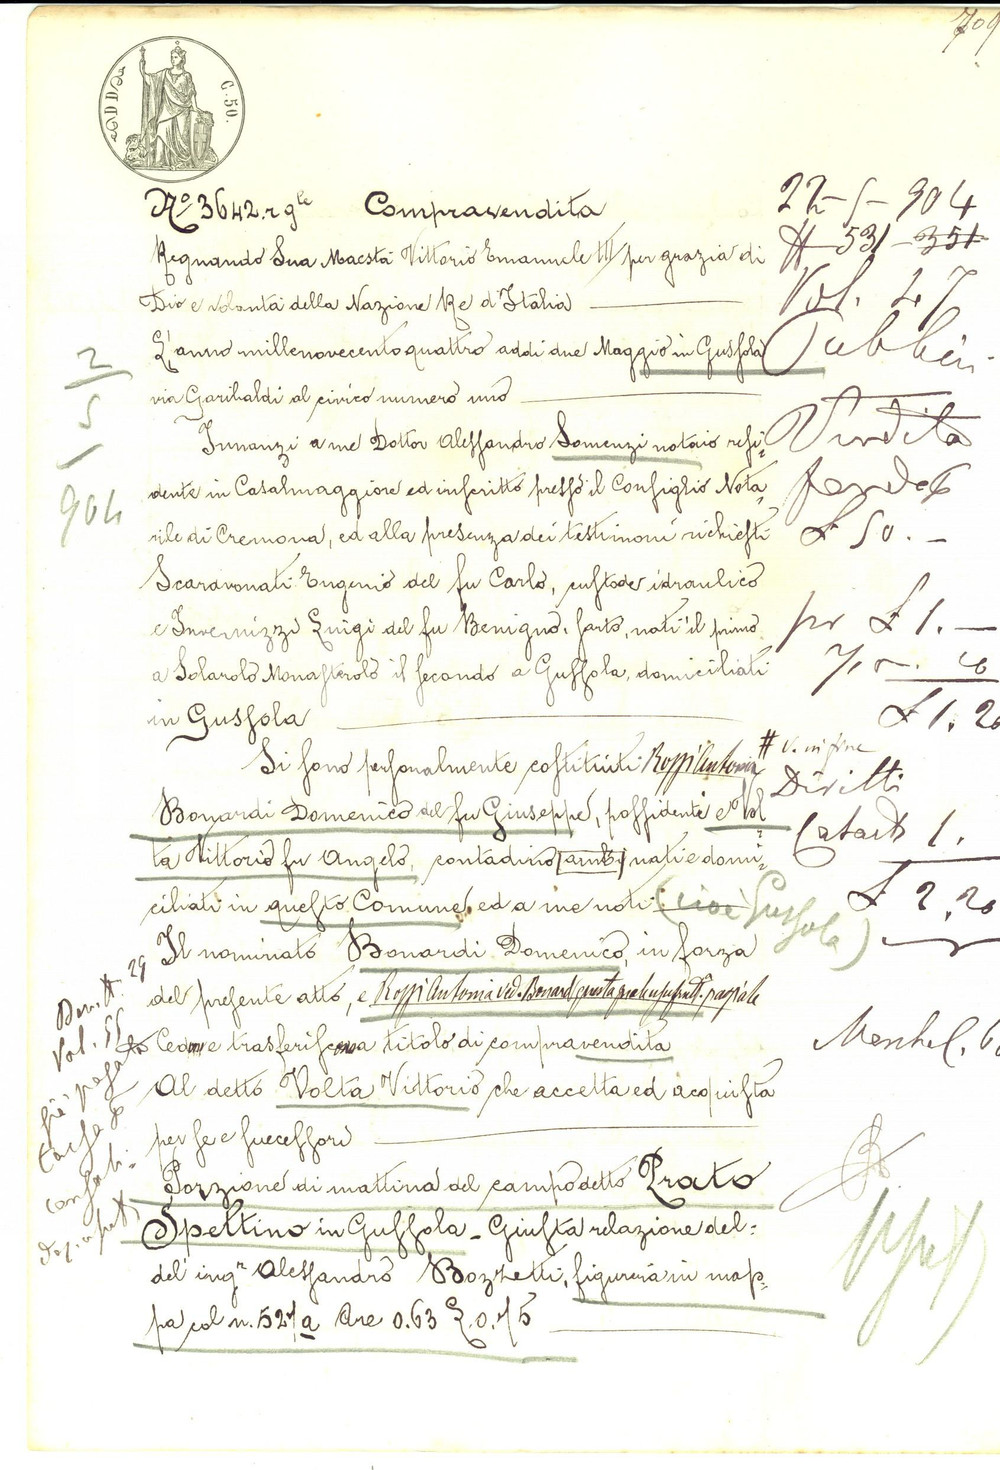 709
C. 50.
N.º 3642. rgle Compravendita
Regnando Sua Maestà Vittorio Emanuele III per grazia di
Dio e volontà della Nazione Re d'Italia
L'anno millenovecentoquattro addì due Maggio in Gussola
via Garibaldi al civico numero uno
Innanzi a me Dottor Alessandro Somenzi notaio resi-
dente in Casalmaggiore ed inscritto presso il Consiglio Nota-
rile di Cremona, ed alla presenza dei testimoni richiesti
Scaravonati Eugenio del fu Carlo, custode idraulico
e Invernizzi Luigi del fu Benigno, sarto, nati il primo
a Solarolo Monasterolo il secondo a Gussola, domiciliati
in Gussola
Si sono personalmente costituiti Rossi Antonia #
Bonardi Domenico del fu Giuseppe, possidente e Vol-
ta Vittorio fu Angelo, contadino ambi nati e domi-
ciliati in questo Comune ed a me noti (cioè Gussola)
Il nominato Bonardi Domenico, in forza
del presente atto, e Rossi Antonia ved. Bonardi
Cedono e trasferiscono a titolo di compravendita
Al detto Volta Vittorio che accetta ed acquista
per se e successori
Porzione di mattina del campo detto Prato
Speltino in Gussola - Giusta relazione del-
dell' ingr Alessandro Bozzetti, figurerà in map-
pa col n. 527/a Are 0.63 L. 0.75
2
5
904
22-5-904
# 531 - 351
Vol. 47
Pubblici
Vendita
fondo
£ 50. -
pr £ 1. -
20
£ 1.20
# v. in fine
Diritti
Catasto 1.
£ 2,20
29
Vol. 55